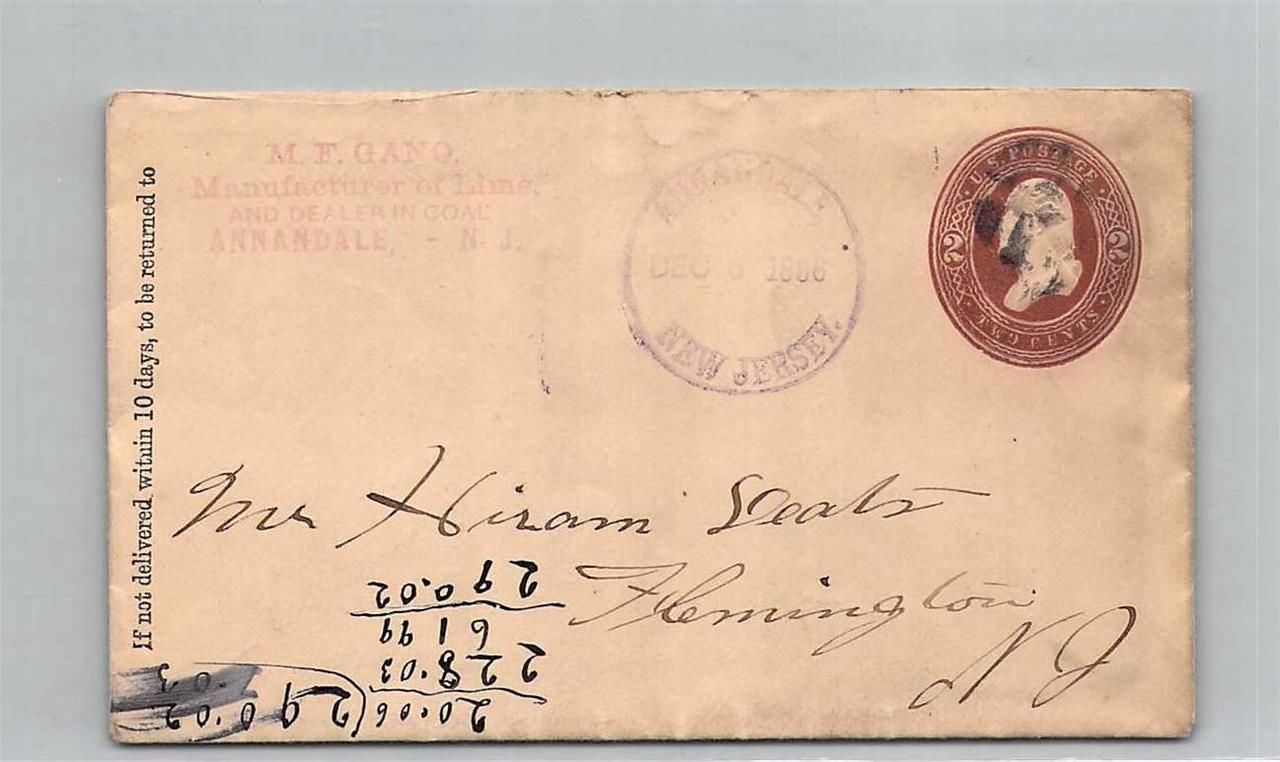 If not delivered within 10 days, to be returned to
M. F. GANO,
Manufacturer of Lime,
AND DEALER IN COAL
ANNANDALE, - N. J.
ANNANDALE
DEC 6 1886
NEW JERSEY.
U.S. POSTAGE
2 2
TWO CENTS
Mr Hiram Deats
Flemington
N J
20.06 (290.02
228.03
61 99
290.02